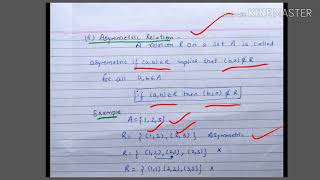 KINEMASTER
(5) Asymmetric Relation -
A relation R on a set A is called
asymmetric if (a,b)∈R implies that (b,a)∉R
for all a,b∈A
if (a,b)∈R then (b,a)∉R
Example
A={1,2,3}
R = { (1,2), (2,3) } Asymmetric
R = { (1,2), (2,1), (2,3)} ×
R = { (1,1) (2,2), (3,3)} ×